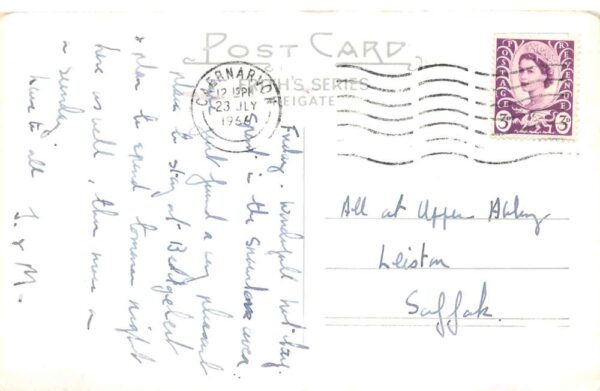 POST CARD
FRITH'S SERIES
REIGATE
CAERNARVON
12.15PM
23 JLY
196
POSTAGE
REVENUE
3D
3D
Friday. Wonderful hot day.
Spent in the Snowdon area
but found a very pleasant
place to stay at Beddgelert
& plan to spend tomorrow night
here as well, then more on
Sunday.
Love to all
J. & M.
All at Upper Abbey
Leiston
Suffolk.